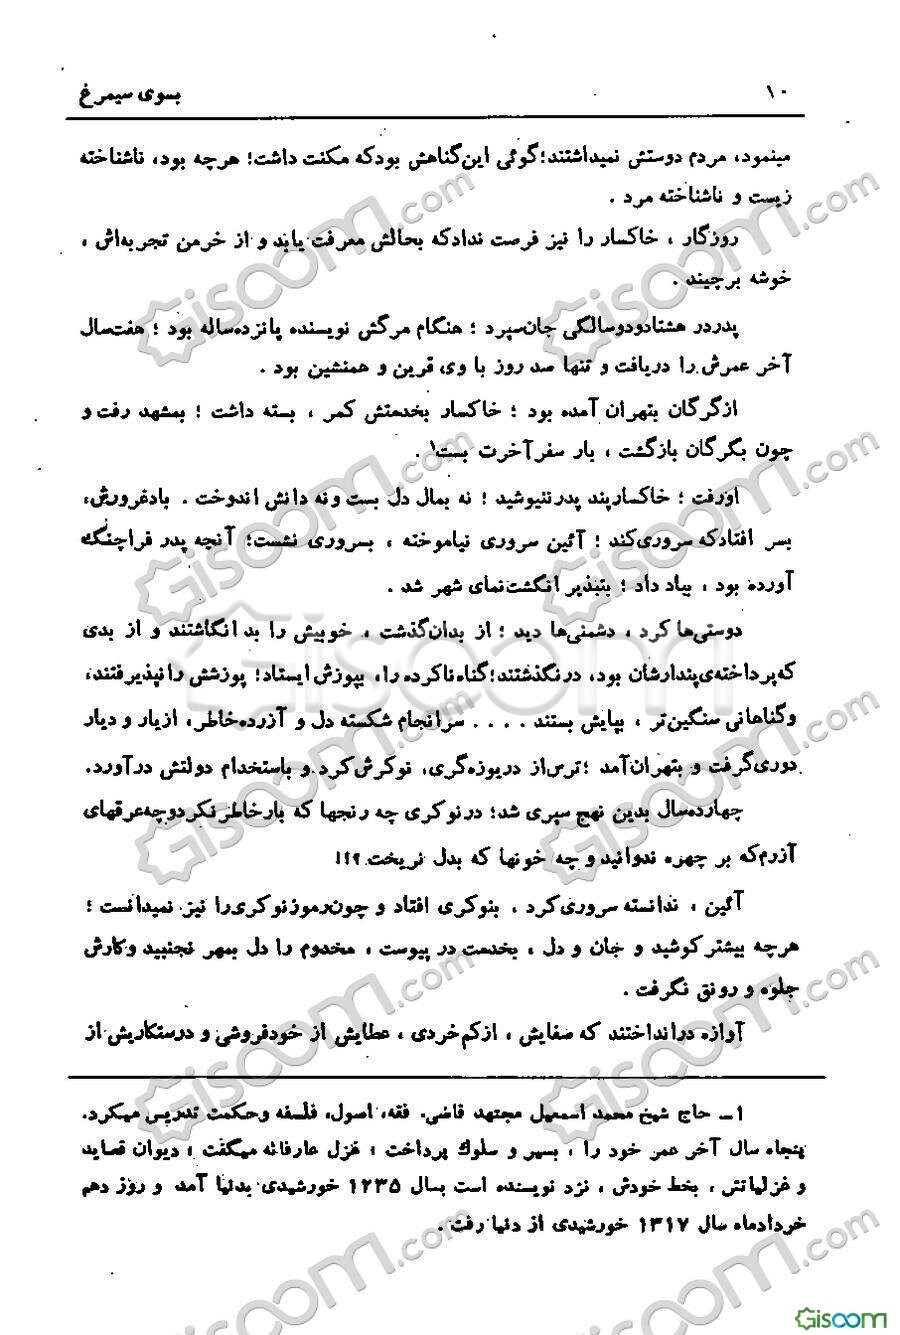 ۱۰ بسوی سیمرغ
مینمود، مردم دوستش نمیداشتند؛ گوئی این گناهش بود که مکنت داشت؛ هرچه بود، ناشناخته
زیست و ناشناخته مرد .
روزگار ، خاکسار را نیز فرصت نداد که بحالش معرفت یابد و از خرمن تجربه‌اش ،
خوشه برچیند .
پدر در هشتاد و دو سالگی جان سپرد ؛ هنگام مرگش نویسنده پانزده ساله بود ؛ هفت سال
آخر عمرش را دریافت و تنها صد روز با وی قرین و همنشین بود .
از گرگان بتهران آمده بود ؛ خاکسار بخدمتش کمر ، بسته داشت ؛ بمشهد رفت و
چون بگرگان بازگشت ، بار سفر آخرت بست۱ .
او رفت ؛ خاکسار پند پدر ننیوشید ؛ نه بمال دل بست و نه دانش اندوخت . باد غرورش،
بسر افتاد که سروری کند ؛ آئین سروری نیاموخته ، بسروری نشست؛ آنچه پدر فراچنگ
آورده بود ، بباد داد ؛ بتبذیر انگشت‌نمای شهر شد .
دوستی‌ها کرد ، دشمنی‌ها دید ؛ از بدان گذشت ، خوبیش را بد انگاشتند و از بدی
که پرداخته‌ی پندارشان بود، درنگذشتند؛ گناه ناکرده را، بپوزش ایستاد؛ پوزشش را نپذیرفتند،
و گناهانی سنگین‌تر ، بپایش بستند . . . . سرانجام شکسته دل و آزرده خاطر، از یار و دیار
دوری گرفت و بتهران آمد ؛ ترس از دریوزه‌گری، نوکرش کرد و باستخدام دولتش درآورد.
چهارده سال بدین نهج سپری شد؛ در نوکری چه رنجها که بار خاطر نکرد و چه عرقهای
آزرم که بر چهره ندوانید و چه خونها که بدل نریخت ؟!!
آئین ، ندانسته سروری کرد ، بنوکری افتاد و چون رموز نوکری را نیز نمیدانست ؛
هرچه بیشتر کوشید و جان و دل ، بخدمت در پیوست ، مخدوم را دل بمهر نجنبید و کارش
جلوه و رونق نگرفت .
آوازه درانداختند که صفایش ، از کم‌خردی ، عطایش از خودفروشی و درستکاریش از
۱ــ حاج شیخ محمد اسمعیل مجتهد قاضی. فقه، اصول، فلسفه و حکمت تدریس میکرد.
پنجاه سال آخر عمر خود را ، بسیر و سلوك پرداخت ؛ غزل عارفانه میگفت ؛ دیوان قصاید
و غزلیاتش ، بخط خودش ، نزد نویسنده است بسال ۱۲۳۵ خورشیدی بدنیا آمد و روز دهم
خردادماه سال ۱۳۱۷ خورشیدی از دنیا رفت .
Gisoom.com
Gisoom